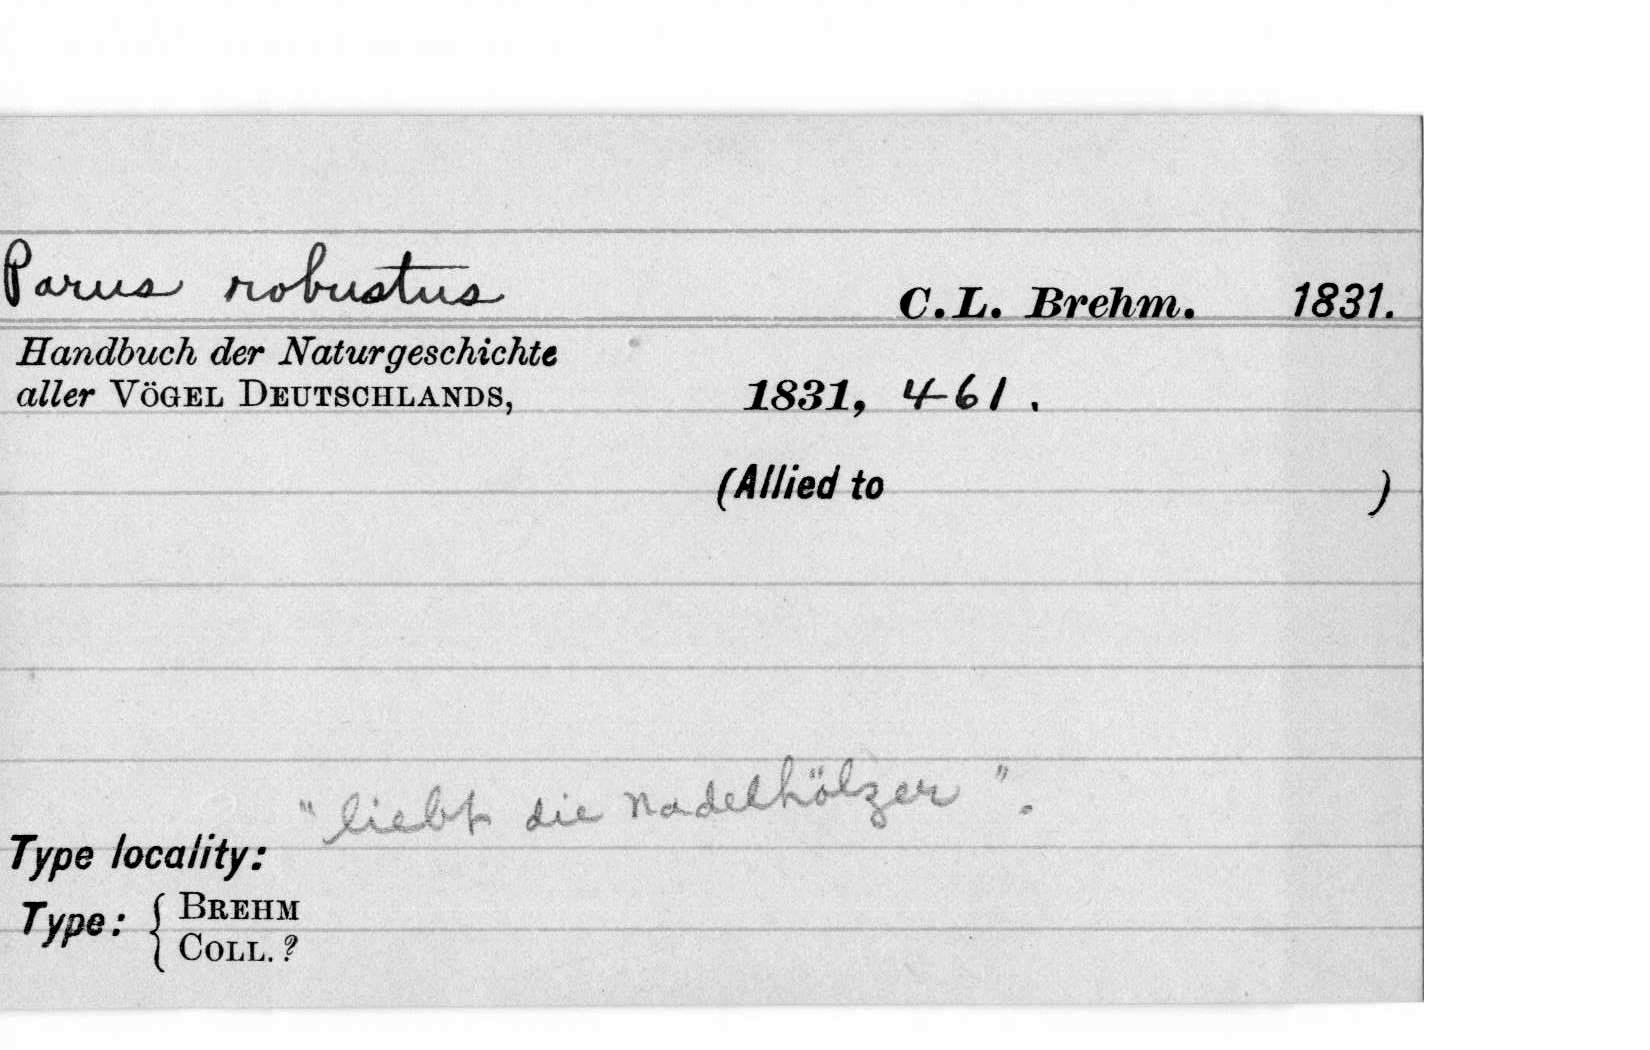 Parus robustus C. L. Brehm. 1831.
Handbuch der Naturgeschichte
aller VÖGEL DEUTSCHLANDS, 1831, 461.
(Allied to )
"liebt die Nadelhölzer".
Type locality:
Type: { BREHM
COLL. ?